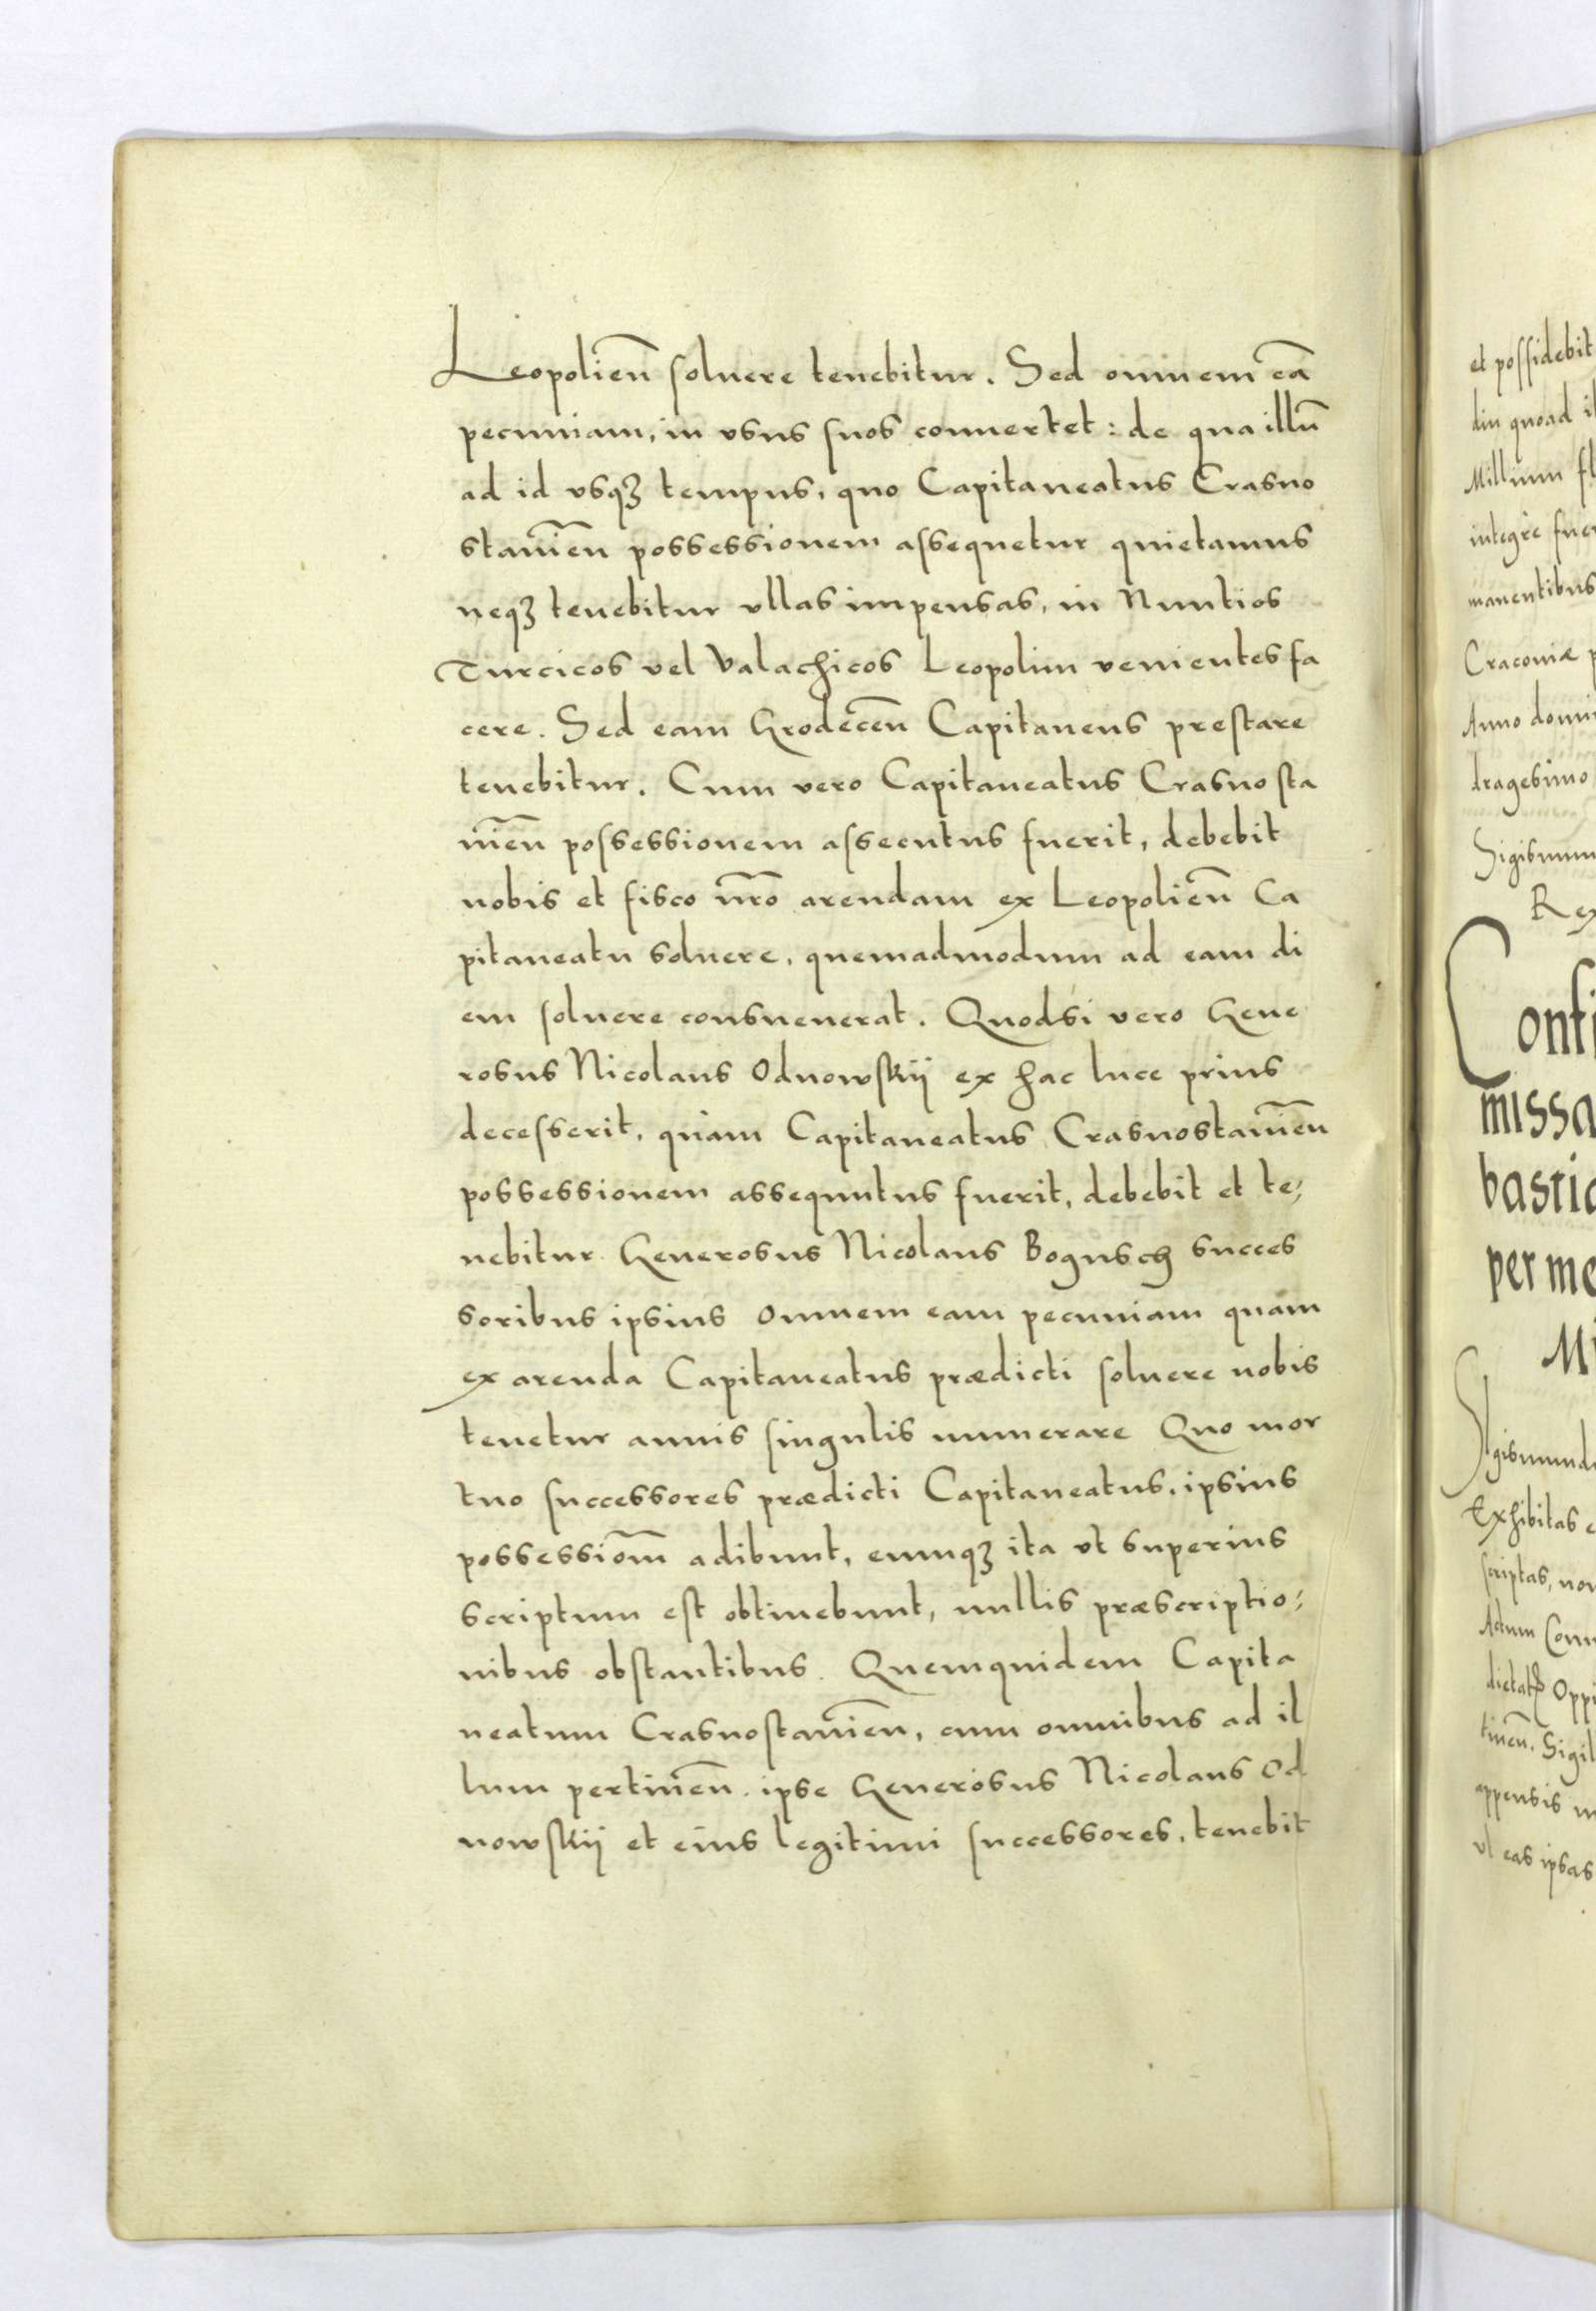 Leopolien̄ soluere tenebitur. Sed omnem eā
pecuniam, in vsus suos conuertet: de qua illū
ad id vsqꝫ tempus, quo Capitaneatus Crasno
stauien̄ possessionem assequetur quietamus
neqꝫ tenebitur vllas impensas, in Nuntios
Turcicos vel Valachicos Leopolim venientes fa
cere. Sed eam Grodecen̄ Capitaneus prestare
tenebitur. Cum vero Capitaneatus Crasnosta
uien̄ possessionem assecutus fuerit, debebit
nobis et fisco nr̄o arendam ex Leopolien̄ Ca
pitaneatu soluere, quemadmodum ad eam di
em soluere consueuerat. Quodsi vero Gene
rosus Nicolaus Odnowskij ex hac luce prius
decesserit, quam Capitaneatus Crasnostauien̄
possessionem assequutus fuerit, debebit et te;
nebitur Generosus Nicolaus Bogusch succes
soribus ipsius omnem eam pecuniam quam
ex arenda Capitaneatus prædicti soluere nobis
tenetur annis singulis numerare Quo mor
tuo successores prædicti Capitaneatus, ipsius
possessiom̄ adibunt, eumqꝫ ita vt superius
scriptum est obtinebunt, nullis præscriptio;
nibus obstantibus. Quemquidem Capita
neatum Crasnostauien̄, cum omnibus ad il
lum pertinen̄. ipse Generosus Nicolaus Od
nowskij et eius legitimi successores, tenebit
et possidebit
diu quoad
Millium
integre
manentibus
Cracouiæ
Anno
dragesimo
Rex
missa
per
Exhibitas
scriptas,
Actum
Oppi
tinen̄. Sigil
appensis
vl eas ipsas